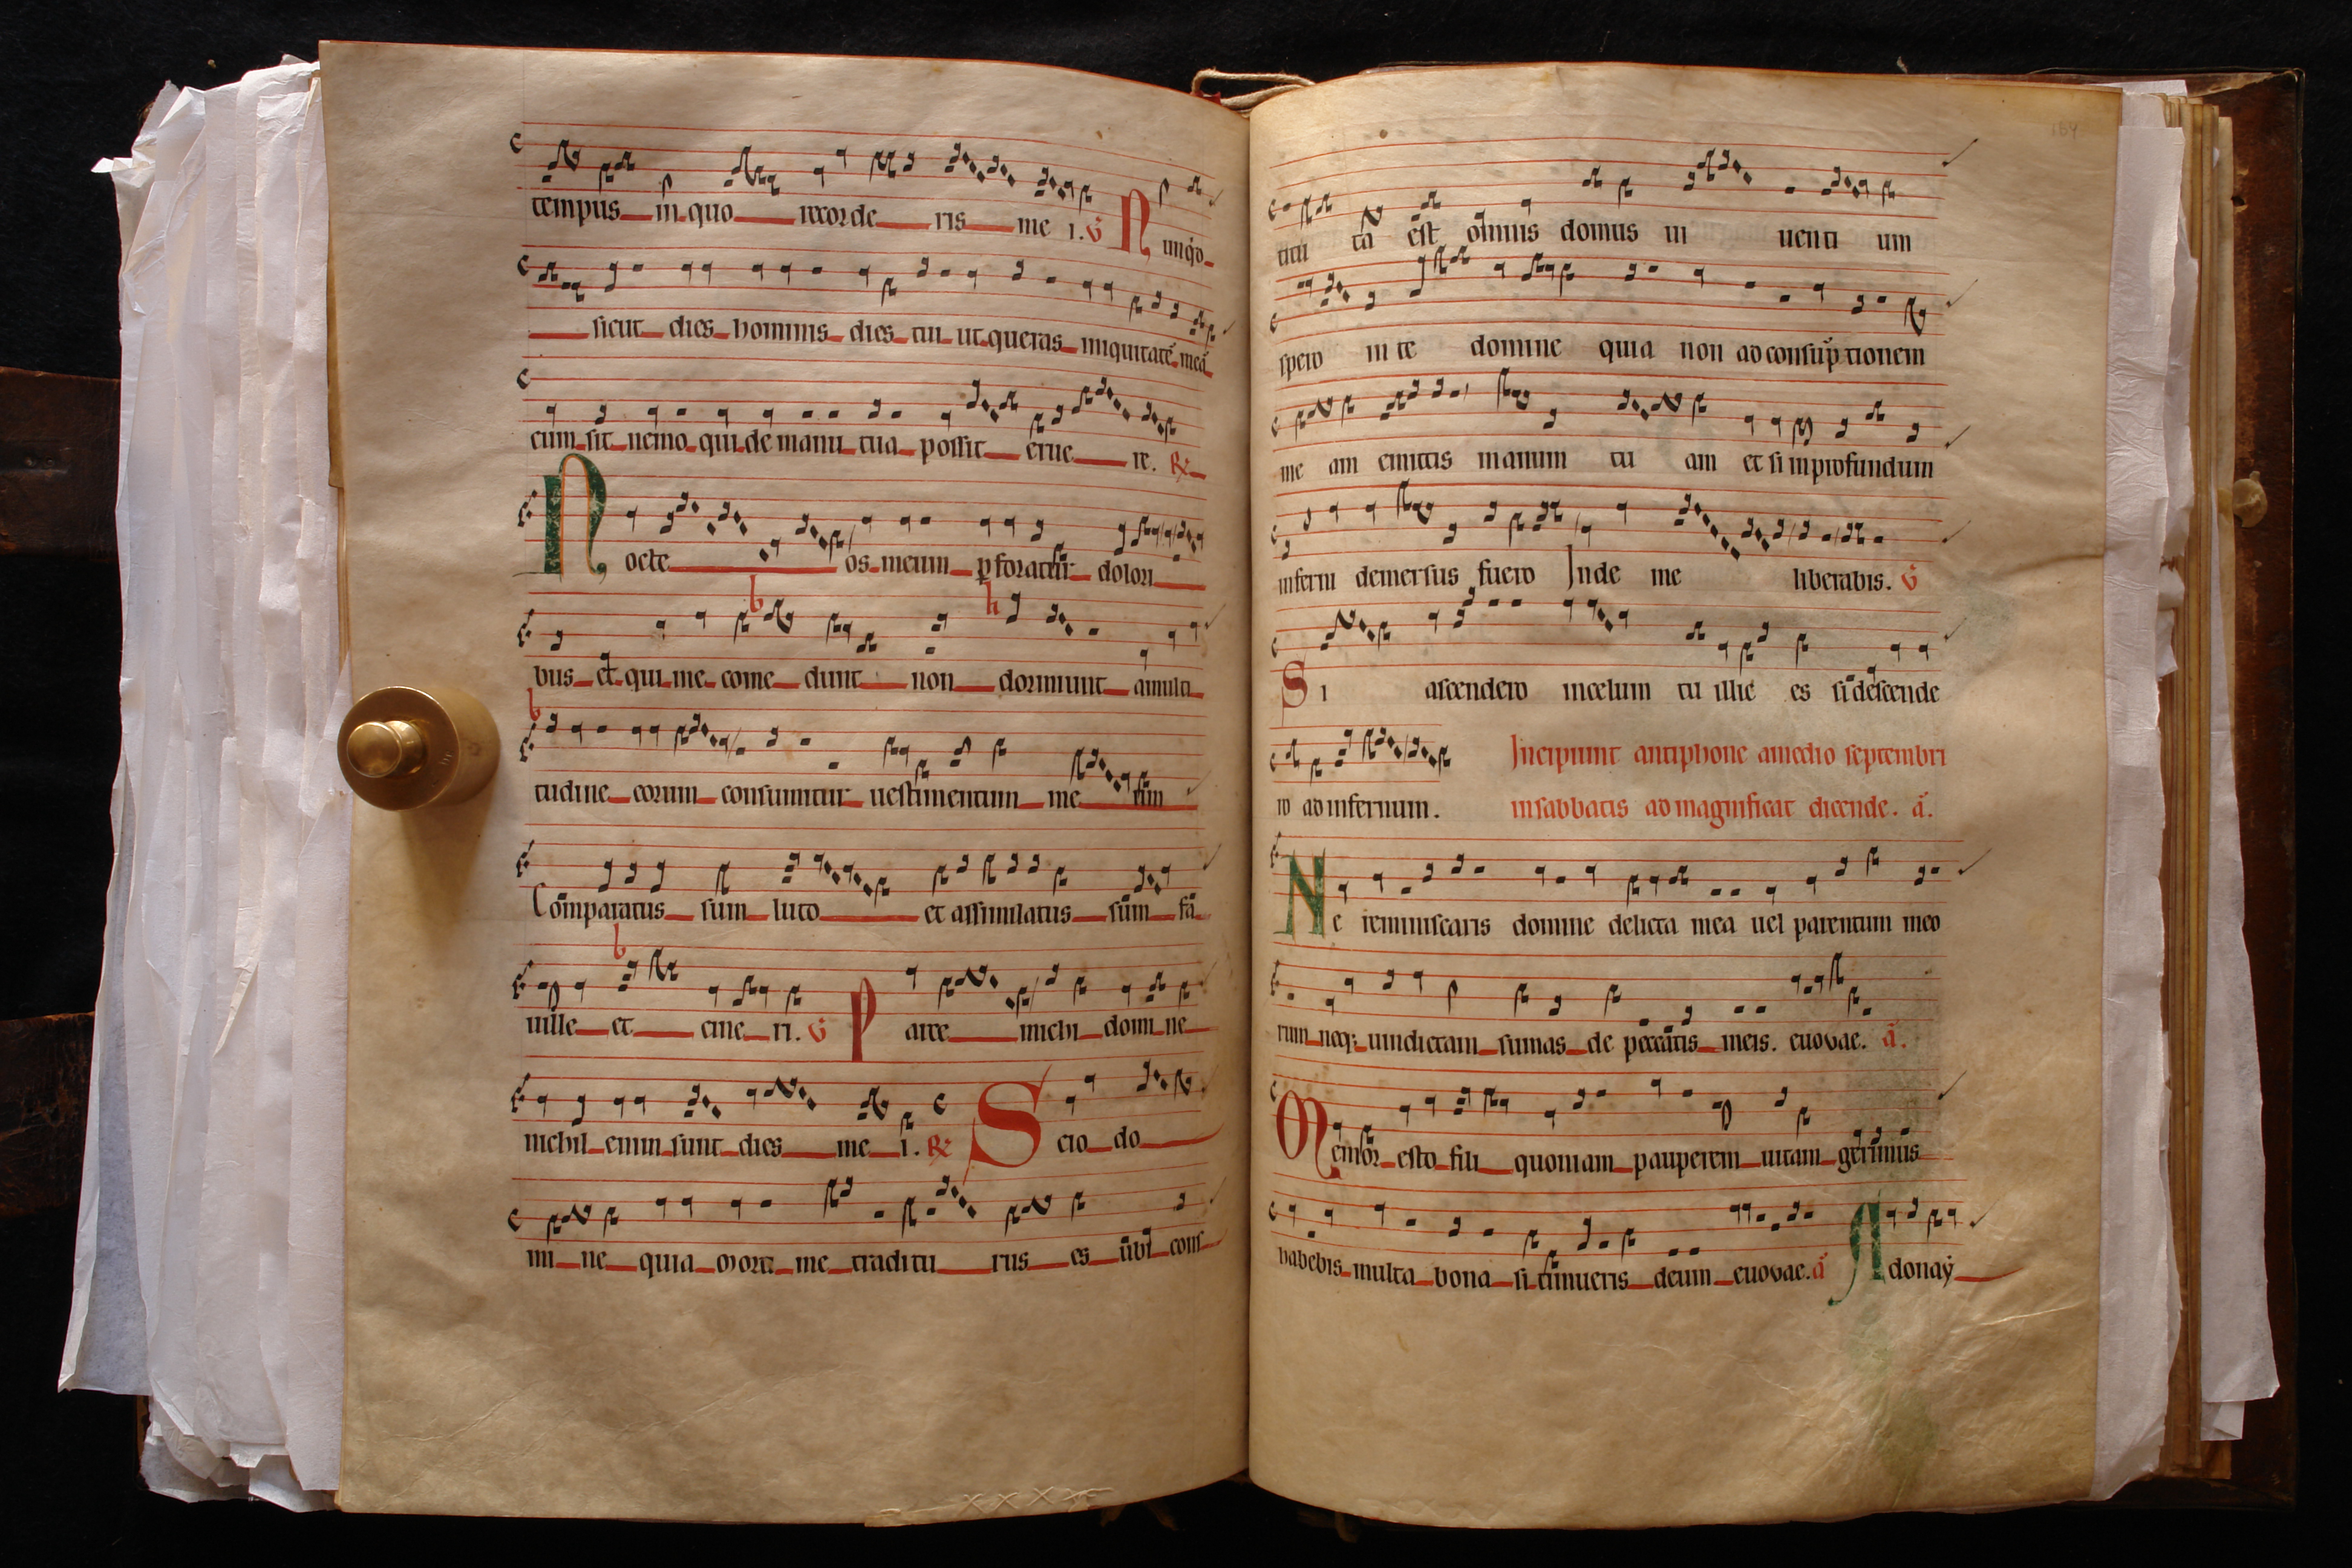 tempus in quo recorde ris me i. V Nunq̇d
sicut dies hominis dies tui ut queras iniquitatē meā
cum sit nemo qui de manu tua possit erue re. R
Nocte os meum ꝑforatur dolori
b h
bus et qui me come dunt non dormiunt amulti
b
tudine eorum consumitur uestimentum me um
Comparatus sum luto et assimilatus sum fa
b
uille et cine ri. V Parce michi domi ne
nichil enim sunt dies me i. R Scio do
mi ne quia morti me traditu rus es ubi cons
184
titu ta est omnis domus ui uenti um
spero in te domine quia non ad consuṗtionem
me am emittis manum tu am et si in profundum
inferni demersus fuero Inde me liberabis. V
Si ascendero in celum tu illic es si descende
ro ad infernum. Incipiunt antiphone amedio septembri
in sabbatis ad magnificat dicende. ā.
Ne reminiscaris domine delicta mea uel parentum meo
rum neq; uindictam sumas de peccatis meis. euovae. ā.
Memor esto fili quoniam pauperem uitam gerimus
habebis multa bona si timueris deum euovae. ā Adonaẏ